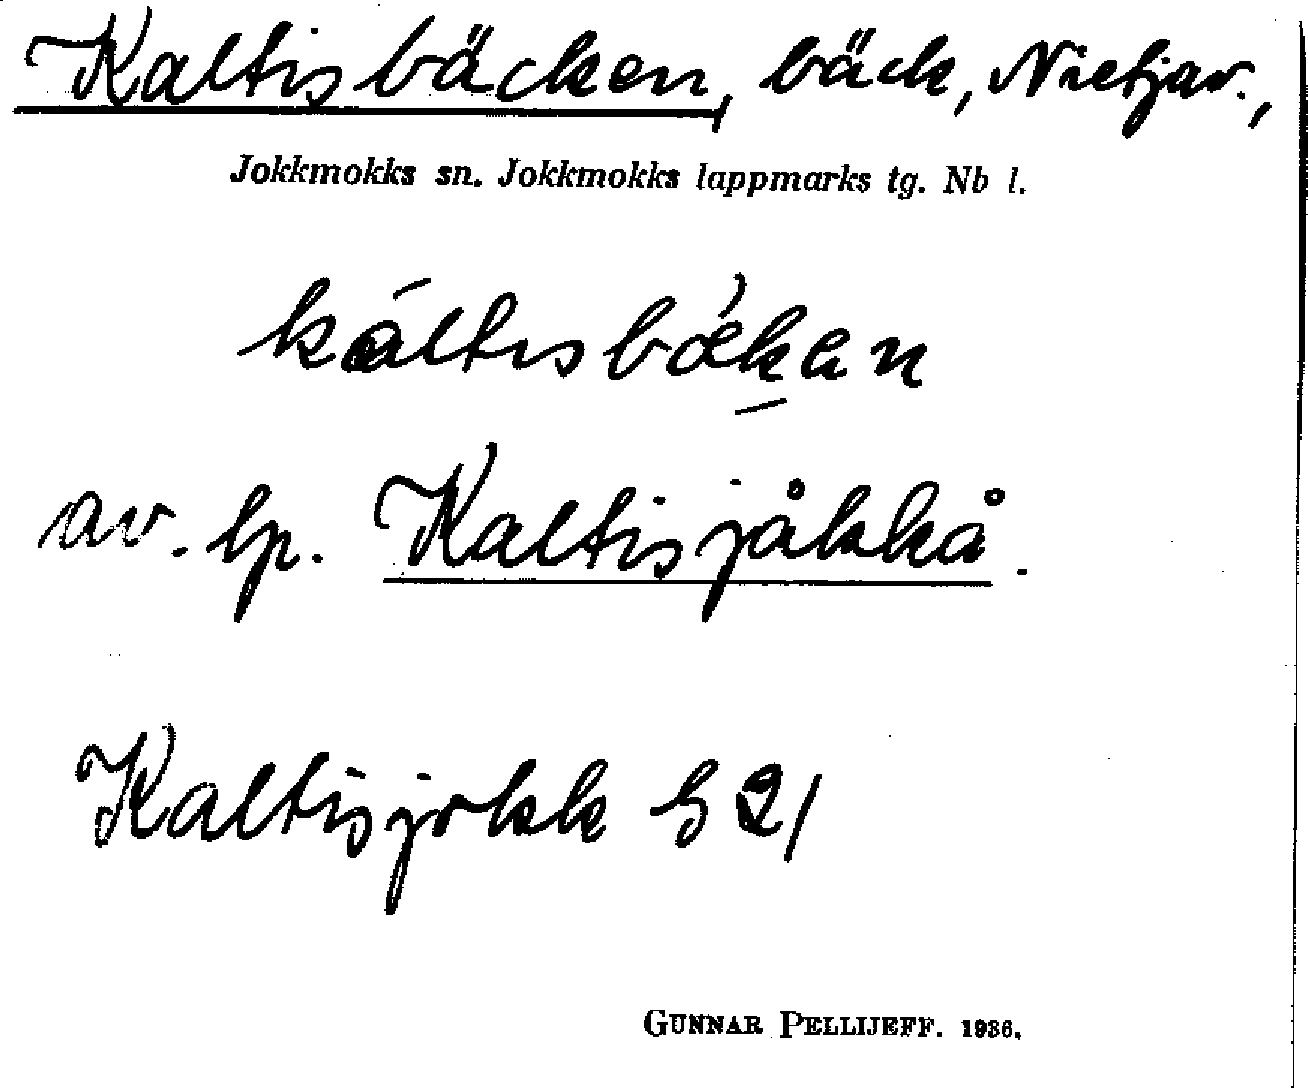 Kaltisbäcken, bäck, Nietjav.,
Jokkmokks sn. Jokkmokks lappmarks tg. Nb l.
káltisbǽkan
av. lp. Kaltisjåkkå.
Kaltisjokk S 21
GUNNAR PELLIJEFF. 1936.